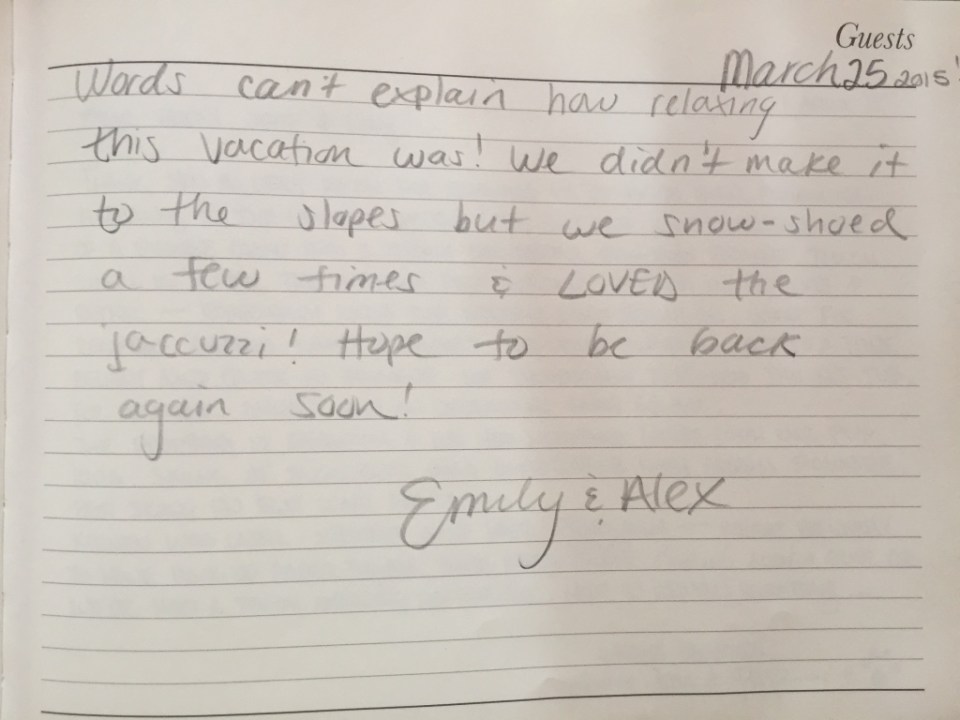 Guests
March 25 2015
Words can't explain how relaxing
this vacation was! We didn't make it
to the slopes but we snow-shoed
a few times & LOVED the
jaccuzzi! Hope to be back
again soon!
Emily & Alex